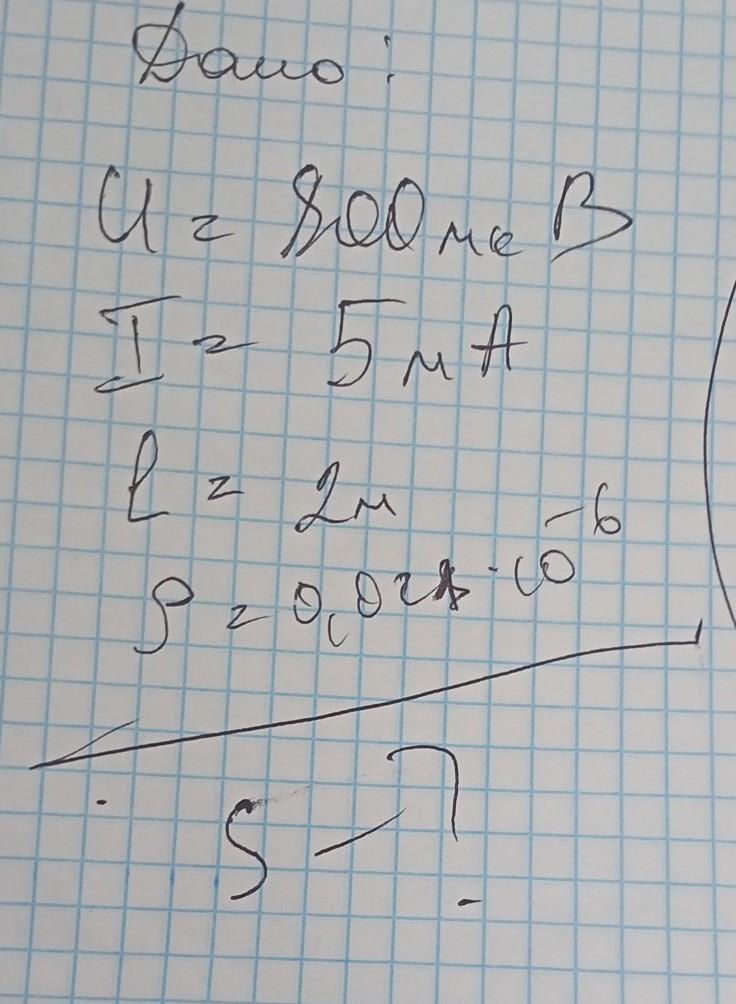 Дано:
U = 800 мк В
I = 5 м А
l = 2м
ρ = 0,028 · 10⁻⁶
S – ?